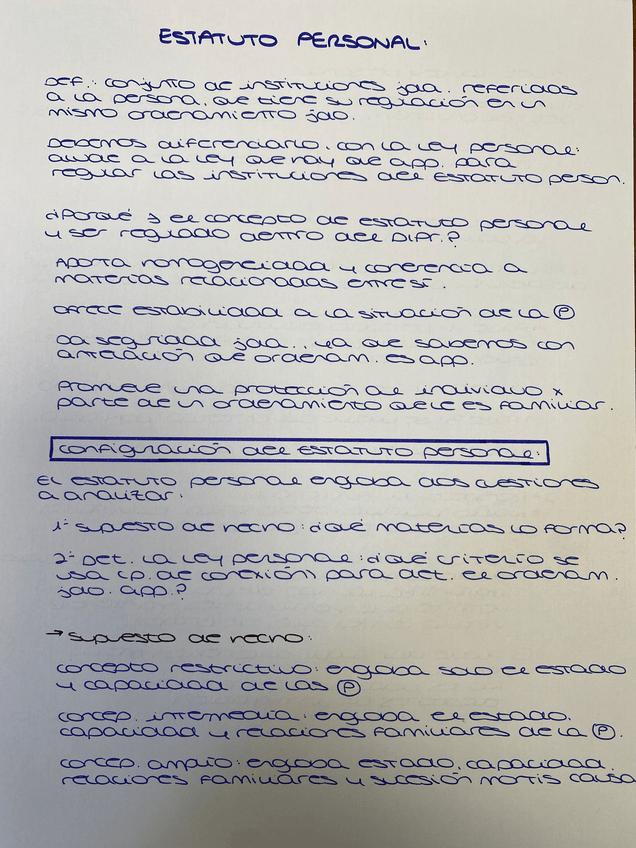 ESTATUTO PERSONAL:
DEF.: conjunto de instituciones jda. referidas
a la persona, que tiene su regulación en un
mismo ordenamiento jdo.
Debemos diferenciarlo, con la ley personal:
alude a la ley que hay que app. para
regular las instituciones del ESTATUTO person.
¿Porqué ∃ el concepto de estatuto personal
y ser regulado dentro del DIPr.?
Aporta homogeneidad y coherencia a
materias relacionadas entresí.
ofrece estabilidad a la situación de la Ⓟ
Da seguridad jda., ya que sabemos con
antelación que ordenam. es app.
Promueve una protección al individuo x
parte de un ordenamiento que le es familiar.
configuración del ESTATUTO personal:
El estatuto personal engloba dos cuestiones
a analizar:
1º supuesto de hecho: ¿qué materias lo forma?
2º Det. la ley personal: ¿qué criterio se
usa (p. de conexión) para det. el ordenam.
jdo. app.?
→ supuesto de hecho:
concepto restrictivo: engloba solo el estado
y capacidad de las Ⓟ
concep. intermedia: engloba el estado,
capacidad y relaciones familiares de la Ⓟ.
concep. amplio: engloba estado, capacidad,
relaciones familiares y sucesión mortis causa